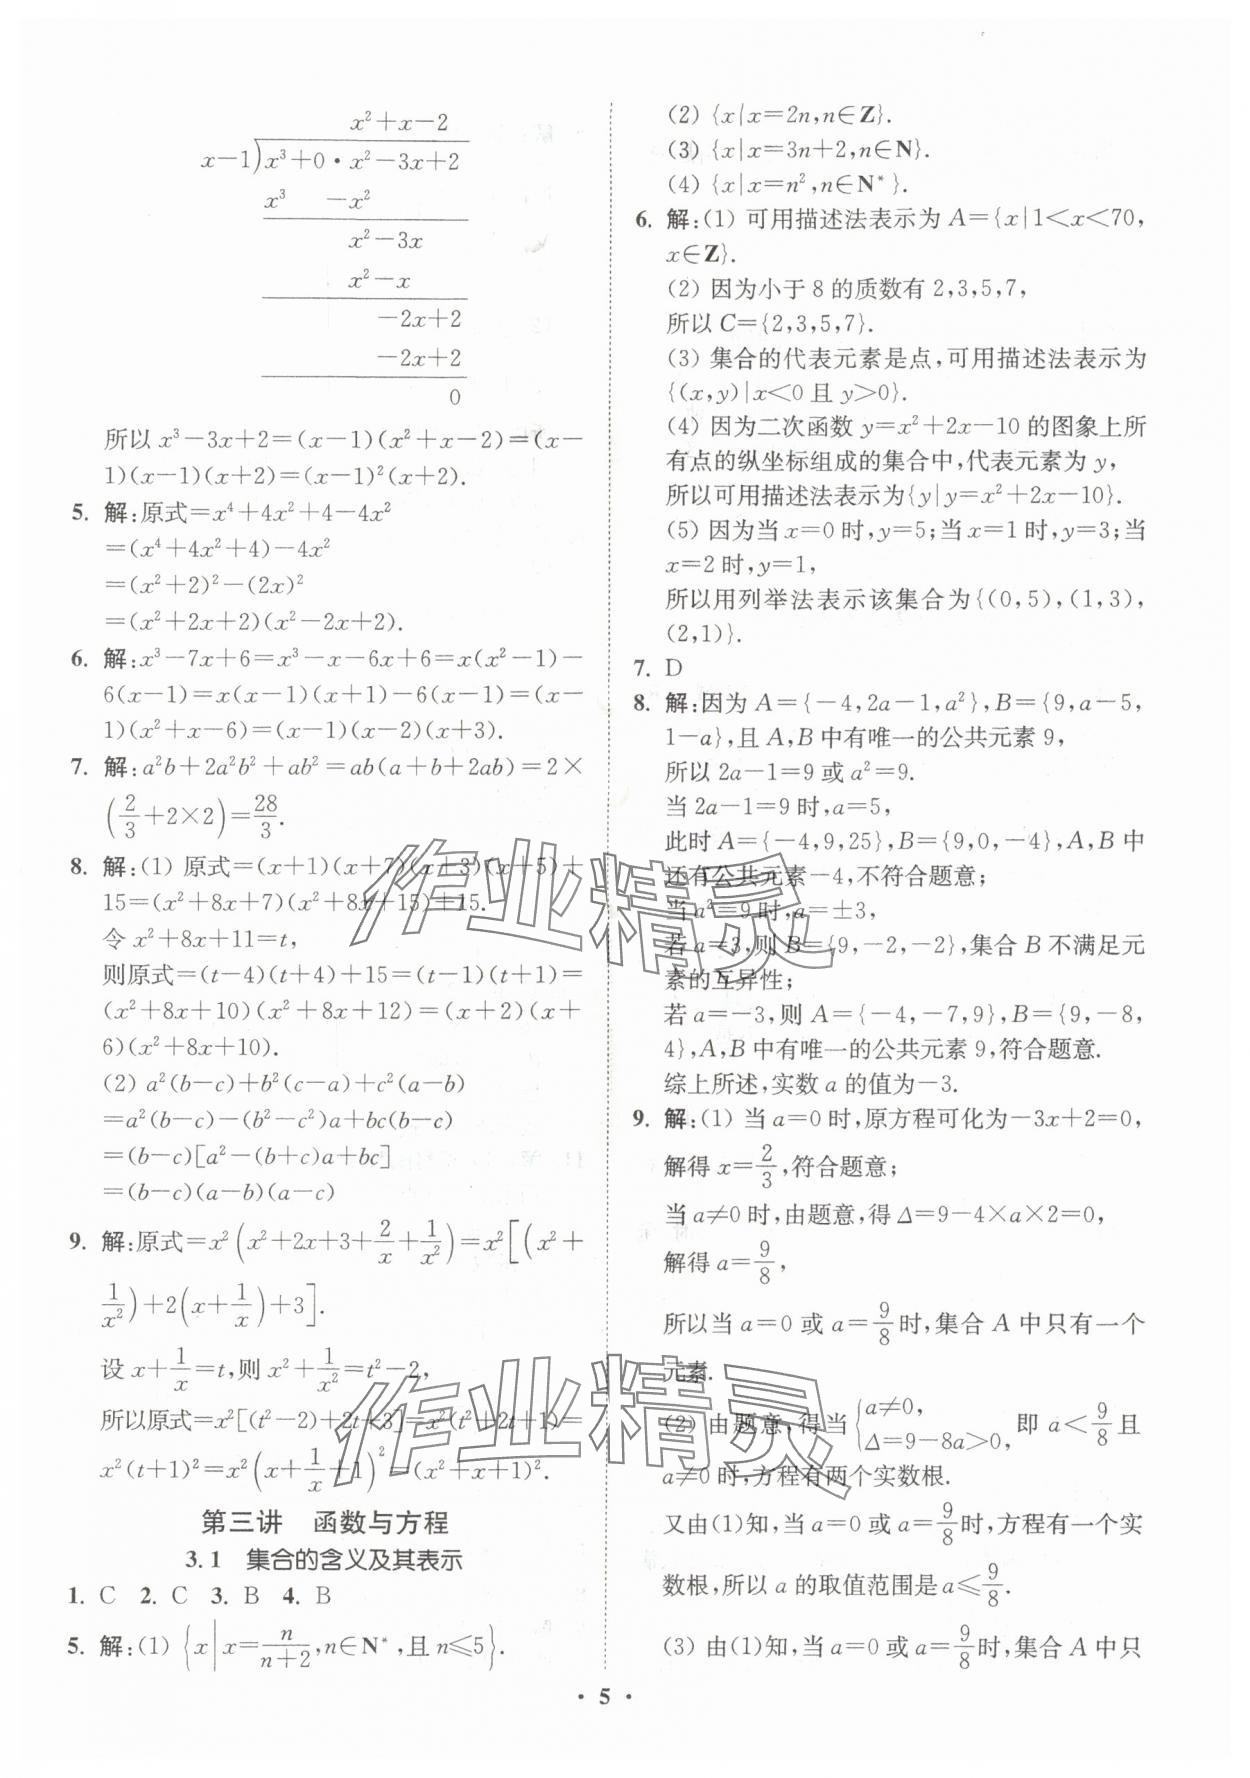 x²+x−2
x−1)x³+0·x²−3x+2
x³ −x²
x²−3x
x²−x
−2x+2
−2x+2
0
所以 x³−3x+2=(x−1)(x²+x−2)=(x−
1)(x−1)(x+2)=(x−1)²(x+2).
5. 解:原式=x⁴+4x²+4−4x²
=(x⁴+4x²+4)−4x²
=(x²+2)²−(2x)²
=(x²+2x+2)(x²−2x+2).
6. 解:x³−7x+6=x³−x−6x+6=x(x²−1)−
6(x−1)=x(x−1)(x+1)−6(x−1)=(x−
1)(x²+x−6)=(x−1)(x−2)(x+3).
7. 解:a²b+2a²b²+ab²=ab(a+b+2ab)=2×
(2/3+2×2)=28/3.
8. 解:(1) 原式=(x+1)(x+7)(x+3)(x+5)+
15=(x²+8x+7)(x²+8x+15)+15.
令 x²+8x+11=t,
则原式=(t−4)(t+4)+15=(t−1)(t+1)=
(x²+8x+10)(x²+8x+12)=(x+2)(x+
6)(x²+8x+10).
(2) a²(b−c)+b²(c−a)+c²(a−b)
=a²(b−c)−(b²−c²)a+bc(b−c)
=(b−c)[a²−(b+c)a+bc]
=(b−c)(a−b)(a−c)
9. 解:原式=x²(x²+2x+3+2/x+1/x²)=x²[(x²+
1/x²)+2(x+1/x)+3].
设 x+1/x=t,则 x²+1/x²=t²−2,
所以原式=x²[(t²−2)+2t+3]=x²(t²+2t+1)=
x²(t+1)²=x²(x+1/x+1)²=(x²+x+1)².
第三讲 函数与方程
3.1 集合的含义及其表示
1. C 2. C 3. B 4. B
5. 解:(1) {x|x=n/(n+2),n∈N*,且 n≤5}.
(2) {x|x=2n,n∈Z}.
(3) {x|x=3n+2,n∈N}.
(4) {x|x=n²,n∈N*}.
6. 解:(1) 可用描述法表示为 A={x|1<x<70,
x∈Z}.
(2) 因为小于 8 的质数有 2,3,5,7,
所以 C={2,3,5,7}.
(3) 集合的代表元素是点,可用描述法表示为
{(x,y)|x<0 且 y>0}.
(4) 因为二次函数 y=x²+2x−10 的图象上所
有点的纵坐标组成的集合中,代表元素为 y,
所以可用描述法表示为{y|y=x²+2x−10}.
(5) 因为当 x=0 时,y=5;当 x=1 时,y=3;当
x=2 时,y=1,
所以用列举法表示该集合为{(0,5),(1,3),
(2,1)}.
7. D
8. 解:因为 A={−4,2a−1,a²},B={9,a−5,
1−a},且 A,B 中有唯一的公共元素 9,
所以 2a−1=9 或 a²=9.
当 2a−1=9 时,a=5,
此时 A={−4,9,25},B={9,0,−4},A,B 中
还有公共元素−4,不符合题意;
当 a²=9 时,a=±3,
若 a=3,则 B={9,−2,−2},集合 B 不满足元
素的互异性;
若 a=−3,则 A={−4,−7,9},B={9,−8,
4},A,B 中有唯一的公共元素 9,符合题意.
综上所述,实数 a 的值为−3.
9. 解:(1) 当 a=0 时,原方程可化为−3x+2=0,
解得 x=2/3,符合题意;
当 a≠0 时,由题意,得 Δ=9−4×a×2=0,
解得 a=9/8,
所以当 a=0 或 a=9/8时,集合 A 中只有一个
元素.
(2) 由题意,得当{a≠0, Δ=9−8a>0, 即 a<9/8且
a≠0 时,方程有两个实数根.
又由(1)知,当 a=0 或 a=9/8时,方程有一个实
数根,所以 a 的取值范围是 a≤9/8.
(3) 由(1)知,当 a=0 或 a=9/8时,集合 A 中只
· 5 ·
作业精灵
作业精灵